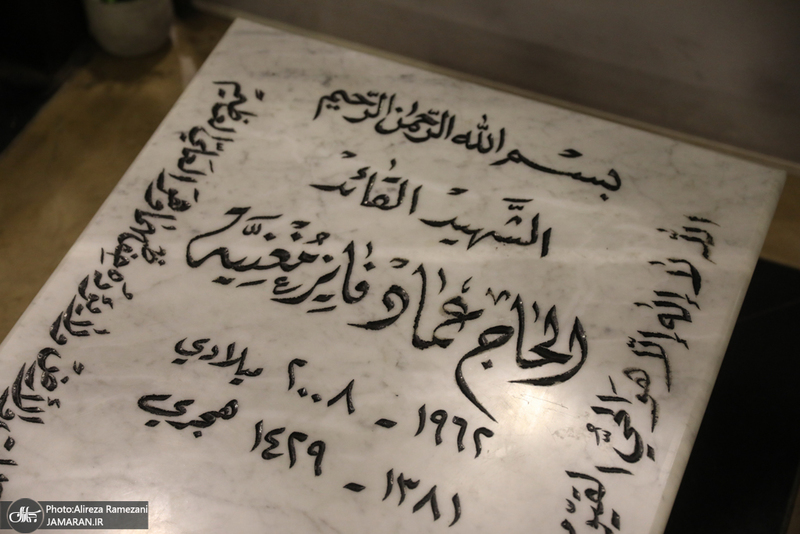 بسم الله الرحمن الرحيم
الشهيد القائد
الحاج عماد فايز مغنية
١٩٦٢ - ٢٠٠٨ ميلادي
١٣٨١ - ١٤٢٩ هجري
الله لا إله إلا هو الحي القيوم
والأرض ولا يؤوده حفظهما وهو العلي العظيم
Photo:Alireza Ramezani
JAMARAN.IR